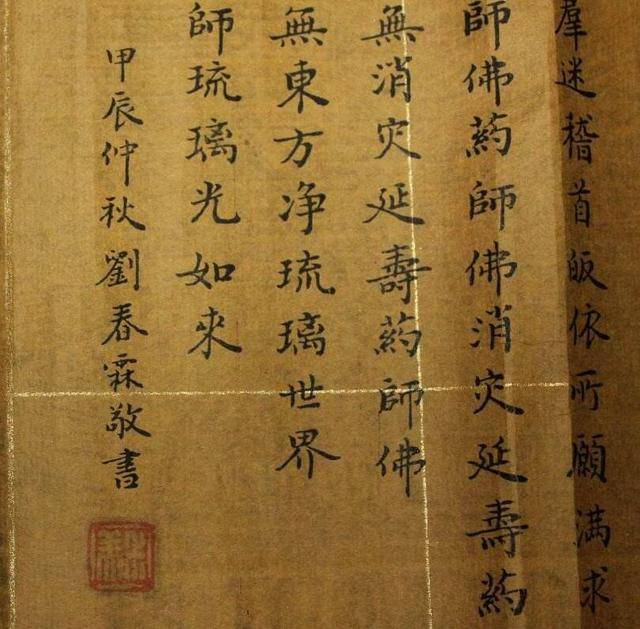 羣迷稽首皈依所願滿求
師佛药師佛消灾延壽药
無消灾延壽药師佛
無東方净琉璃世界
師琉璃光如來
甲辰仲秋劉春霖敬書